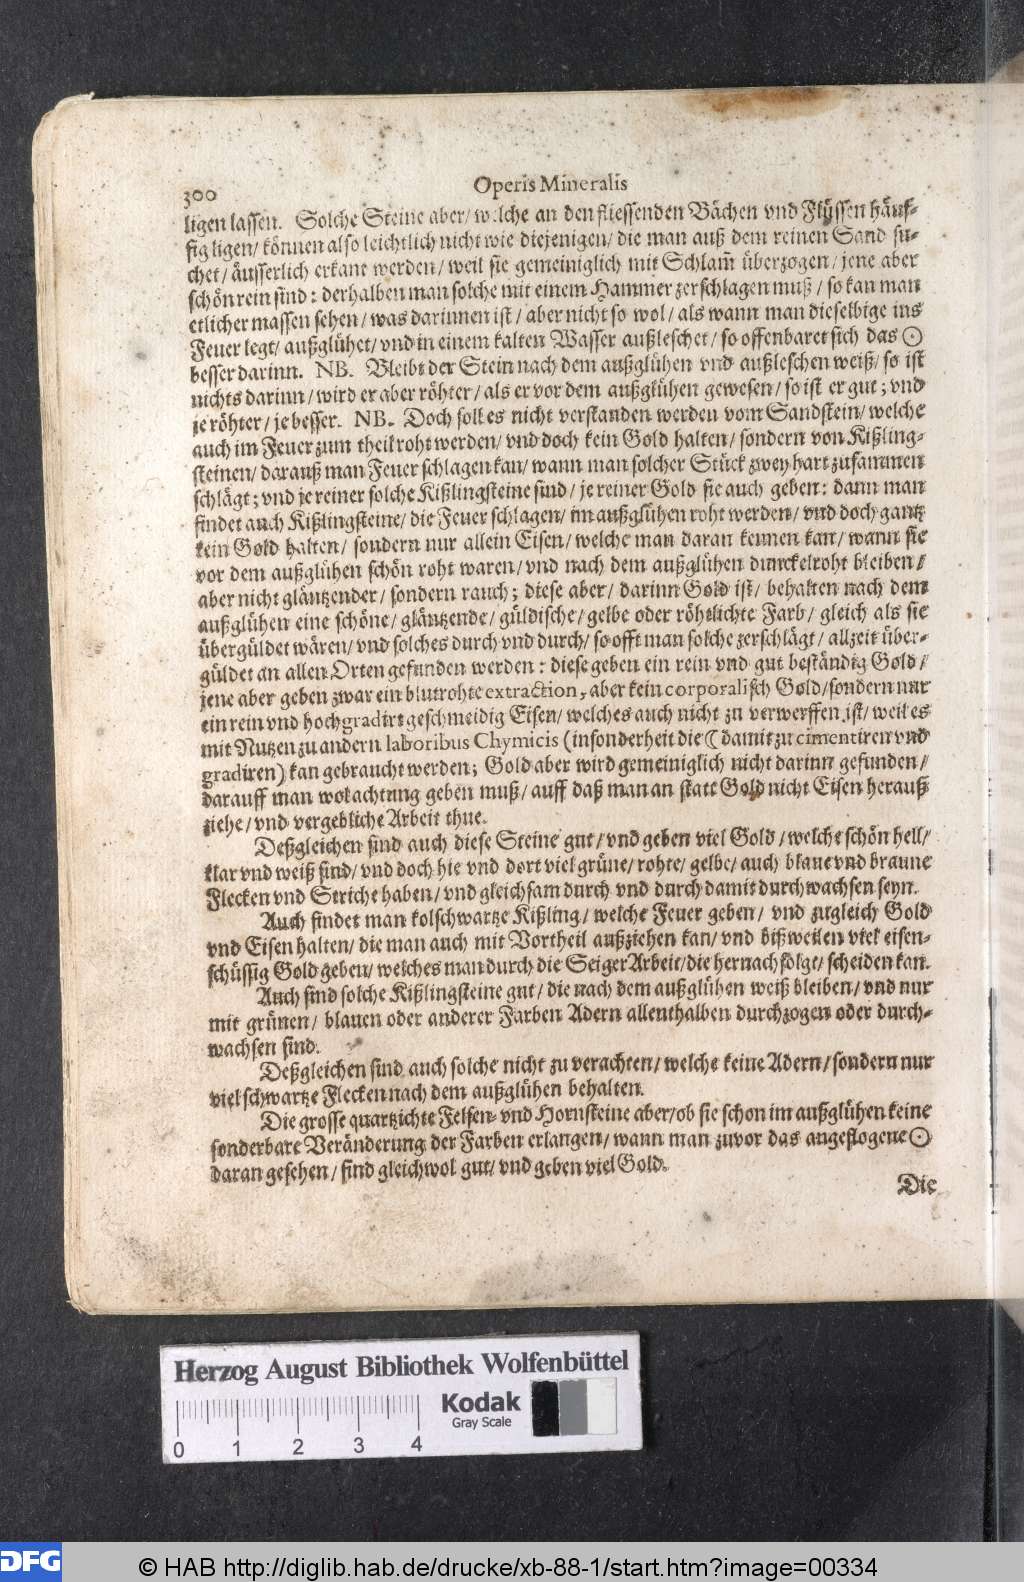 300
Operis Mineralis
ligen lassen. Solche Steine aber/ welche an den fliessenden Bächen vnd Flüssen häuf-
fig ligen/ können also leichtlich nicht wie diejenigen/ die man auß dem reinen Sand su-
chet/ äusserlich erkant werden/ weil sie gemeiniglich mit Schlam̄ überzogen/ jene aber
schön rein sind: derhalben man solche mit einem Hammer zerschlagen muß/ so kan man
etlicher massen sehen/ was darinnen ist/ aber nicht so wol/ als wann man dieselbige ins
Feuer legt/ außglühet/ vnd in einem kalten Wasser außleschet/ so offenbaret sich das ☉
besser darinn. NB. Bleibt der Stein nach dem außglühen vnd außleschen weiß/ so ist
nichts darinn/ wird er aber röhter/ als er vor dem außglühen gewesen/ so ist er gut; vnd
je röhter/ je besser. NB. Doch soll es nicht verstanden werden vom Sandstein/ welche
auch im Feuer zum theil roht werden/ vnd doch kein Gold halten/ sondern von Kißling-
steinen/ darauß man Feuer schlagen kan/ wann man solcher Stück zwey hart zusammen
schlägt; vnd je reiner solche Kißlingsteine sind/ je reiner Gold sie auch geben: dann man
findet auch Kißlingsteine/ die Feuer schlagen/ im außglühen roht werden/ vnd doch gantz
kein Gold halten/ sondern nur allein Eisen/ welche man daran kennen kan/ wann sie
vor dem außglühen schön roht waren/ vnd nach dem außglühen dunckelroht bleiben/
aber nicht gläntzender/ sondern rauch; diese aber/ darinn Gold ist/ behalten nach dem
außglühen eine schöne/ gläntzende/ güldische/ gelbe oder röhtlichte Farb/ gleich als sie
übergüldet wären/ vnd solches durch vnd durch/ so offt man solche zerschlägt/ allzeit über-
güldet an allen Orten gefunden werden: diese geben ein rein vnd gut beständig Gold/
jene aber geben zwar ein blutrohte extraction, aber kein corporalisch Gold/ sondern nur
ein rein vnd hochgradirt geschmeidig Eisen/ welches auch nicht zu verwerffen ist/ weil es
mit Nutzen zu andern laboribus Chymicis (insonderheit die ☾ damit zu cimentiren vnd
gradiren) kan gebraucht werden; Gold aber wird gemeiniglich nicht darinn gefunden/
darauff man wol achtung geben muß/ auff daß man an statt Gold nicht Eisen herauß
ziehe/ vnd vergebliche Arbeit thue.
Deßgleichen sind auch diese Steine gut/ vnd geben viel Gold/ welche schön hell/
klar vnd weiß sind/ vnd doch hie vnd dort viel grüne/ rohte/ gelbe/ auch blaue vnd braune
Flecken vnd Striche haben/ vnd gleichsam durch vnd durch damit durchwachsen seyn.
Auch findet man kolschwartze Kißling/ welche Feuer geben/ vnd zugleich Gold
vnd Eisen halten/ die man auch mit Vortheil außziehen kan/ vnd bißweilen viel eisen-
schüssig Gold geben/ welches man durch die Seiger Arbeit/ die hernach folgt/ scheiden kan.
Auch sind solche Kißlingsteine gut/ die nach dem außglühen weiß bleiben/ vnd nur
mit grünen/ blauen oder anderer Farben Adern allenthalben durchzogen oder durch-
wachsen sind.
Deßgleichen sind auch solche nicht zu verachten/ welche keine Adern/ sondern nur
viel schwartze Flecken nach dem außglühen behalten.
Die grosse quartzichte Felsen- vnd Hornsteine aber/ ob sie schon im außglühen keine
sonderbare Veränderung der Farben erlangen/ wann man zuvor das angeflogene ☉
daran gesehen/ sind gleichwol gut/ vnd geben viel Gold.
Die
Herzog August Bibliothek Wolfenbüttel
Kodak
Gray Scale
0 1 2 3 4
DFG
© HAB http://diglib.hab.de/drucke/xb-88-1/start.htm?image=00334